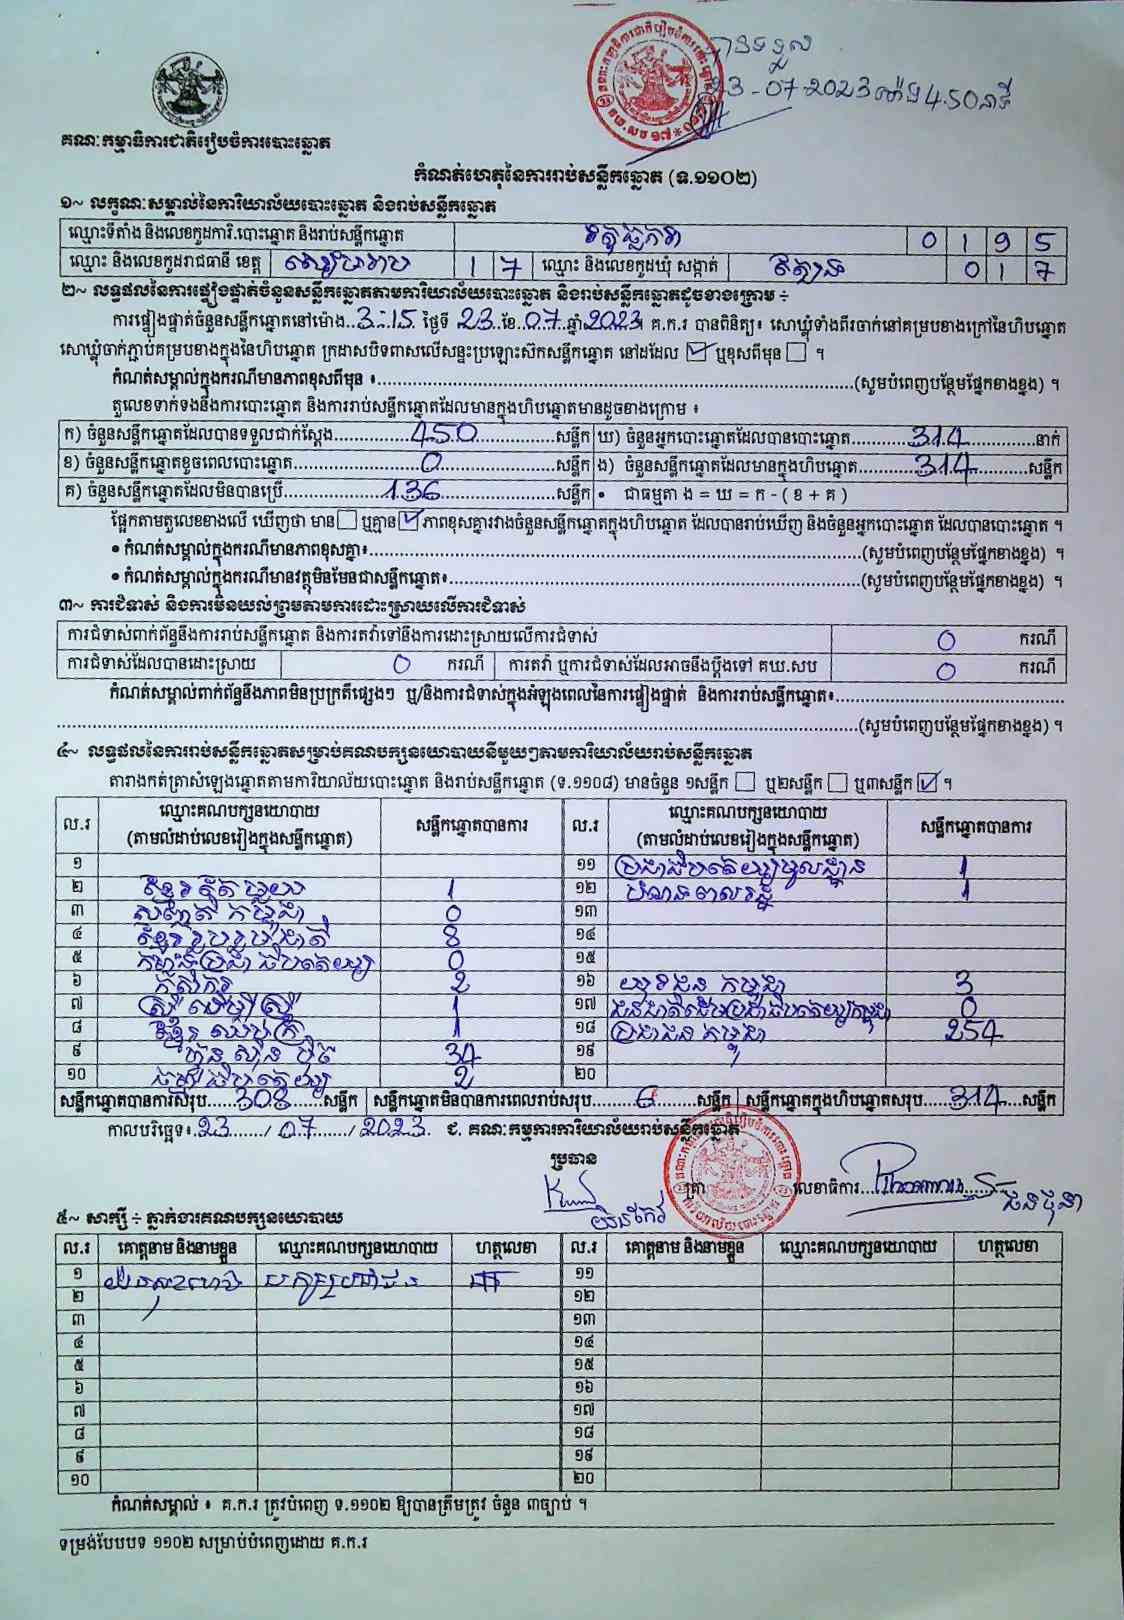 បានទទួល
23-07-2023 ម៉ោង 4.50 នាទី
គណៈកម្មាធិការជាតិរៀបចំការបោះឆ្នោត
កំណត់ហេតុនៃការរាប់សន្លឹកឆ្នោត (ទ.១១០២)
១~ លក្ខណៈសម្គាល់នៃការិយាល័យបោះឆ្នោត និងរាប់សន្លឹកឆ្នោត
ឈ្មោះទីតាំង និងលេខកូដការិ.បោះឆ្នោត និងរាប់សន្លឹកឆ្នោត 0 1 9 5
ឈ្មោះ និងលេខកូដរាជធានី ខេត្ត សៀមរាប 1 7 ឈ្មោះ និងលេខកូដឃុំ សង្កាត់ 0 1 7
២~ លទ្ធផលនៃការផ្ទៀងផ្ទាត់ចំនួនសន្លឹកឆ្នោតតាមការិយាល័យបោះឆ្នោត និងរាប់សន្លឹកឆ្នោតដូចខាងក្រោម ÷
ការផ្ទៀងផ្ទាត់ចំនួនសន្លឹកឆ្នោតនៅម៉ោង..3-15 ថ្ងៃទី 23 ខែ 07 ឆ្នាំ 2023 គ.ក.រ បានពិនិត្យ៖ សោឃ្លុំទាំងពីរចាក់នៅគម្របខាងក្រៅនៃហិបឆ្នោត
សោឃ្លុំចាក់ភ្ជាប់គម្របខាងក្នុងនៃហិបឆ្នោត ក្រដាសបិទពាសលើសន្ទះប្រឡោះស៊កសន្លឹកឆ្នោត នៅដដែល ☑ ឬខុសពីមុន ☐ ។
កំណត់សម្គាល់ក្នុងករណីមានភាពខុសពីមុន ៖..........(សូមបំពេញបន្ថែមផ្នែកខាងខ្នង) ។
តួលេខទាក់ទងនឹងការបោះឆ្នោត និងការរាប់សន្លឹកឆ្នោតដែលមានក្នុងហិបឆ្នោតមានដូចខាងក្រោម ៖
ក) ចំនួនសន្លឹកឆ្នោតដែលបានទទួលជាក់ស្តែង..........450..........សន្លឹក ឃ) ចំនួនអ្នកបោះឆ្នោតដែលបានបោះឆ្នោត..........314..........នាក់
ខ) ចំនួនសន្លឹកឆ្នោតខូចពេលបោះឆ្នោត..........0..........សន្លឹក ង) ចំនួនសន្លឹកឆ្នោតដែលមានក្នុងហិបឆ្នោត..........314..........សន្លឹក
គ) ចំនួនសន្លឹកឆ្នោតដែលមិនបានប្រើ..........136..........សន្លឹក • ជាធម្មតា ង = ឃ = ក - ( ខ + គ )
ផ្អែកតាមតួលេខខាងលើ ឃើញថា មាន ☐ ឬគ្មាន ☑ ភាពខុសគ្នារវាងចំនួនសន្លឹកឆ្នោតក្នុងហិបឆ្នោត ដែលបានរាប់ឃើញ និងចំនួនអ្នកបោះឆ្នោត ដែលបានបោះឆ្នោត ។
• កំណត់សម្គាល់ក្នុងករណីមានភាពខុសគ្នា៖..........(សូមបំពេញបន្ថែមផ្នែកខាងខ្នង) ។
• កំណត់សម្គាល់ក្នុងករណីមានវត្ថុមិនមែនជាសន្លឹកឆ្នោត៖..........(សូមបំពេញបន្ថែមផ្នែកខាងខ្នង) ។
៣~ ការជំទាស់ និងការមិនយល់ព្រមតាមការដោះស្រាយលើការជំទាស់
ការជំទាស់ពាក់ព័ន្ធនឹងការរាប់សន្លឹកឆ្នោត និងការតវ៉ាទៅនឹងការដោះស្រាយលើការជំទាស់ 0 ករណី
ការជំទាស់ដែលបានដោះស្រាយ 0 ករណី ការតវ៉ា ឬការជំទាស់ដែលអាចនឹងប្តឹងទៅ គឃ.សប 0 ករណី
កំណត់សម្គាល់ពាក់ព័ន្ធនឹងភាពមិនប្រក្រតីផ្សេងៗ ឬ/និងការជំទាស់ក្នុងអំឡុងពេលនៃការផ្ទៀងផ្ទាត់ និងការរាប់សន្លឹកឆ្នោត៖..........
..........(សូមបំពេញបន្ថែមផ្នែកខាងខ្នង) ។
៤~ លទ្ធផលនៃការរាប់សន្លឹកឆ្នោតសម្រាប់គណបក្សនយោបាយនីមួយៗតាមការិយាល័យរាប់សន្លឹកឆ្នោត
តារាងកត់ត្រាសំឡេងឆ្នោតតាមការិយាល័យបោះឆ្នោត និងរាប់សន្លឹកឆ្នោត (ទ.១១០៨) មានចំនួន ១សន្លឹក ☐ ឬ២សន្លឹក ☐ ឬ៣សន្លឹក ☑ ។
ល.រ ឈ្មោះគណបក្សនយោបាយ (តាមលំដាប់លេខរៀងក្នុងសន្លឹកឆ្នោត) សន្លឹកឆ្នោតបានការ ល.រ ឈ្មោះគណបក្សនយោបាយ (តាមលំដាប់លេខរៀងក្នុងសន្លឹកឆ្នោត) សន្លឹកឆ្នោតបានការ
១ ១១ ប្រជាធិបតេយ្យមូលដ្ឋាន 1
២ ខ្មែរតែមួយ 1 ១២ បំណងពលរដ្ឋ 1
៣ សញ្ជាតិកម្ពុជា 0 ១៣
៤ ខ្មែររួបរួមជាតិ 8 ១៤
៥ កម្លាំងប្រជាធិបតេយ្យ 0 ១៥
៦ កសិករ 2 ១៦ យុវជនកម្ពុជា 3
៧ ស្រ្តីដើម្បីស្រ្តី 1 ១៧ ជនជាតិដើមប្រជាធិបតេយ្យកម្ពុជា 0
៨ ខ្មែរឈប់ក្រ 1 ១៨ ប្រជាជនកម្ពុជា 254
៩ ហ៊្វុនស៊ិនប៉ិច 34 ១៩
១០ ធម្មាធិបតេយ្យ 2 ២០
សន្លឹកឆ្នោតបានការសរុប......308......សន្លឹក សន្លឹកឆ្នោតមិនបានការពេលរាប់សរុប......6......សន្លឹក សន្លឹកឆ្នោតក្នុងហិបឆ្នោតសរុប......314......សន្លឹក
កាលបរិច្ឆេទ៖ 23 / 07 / 2023 ជ. គណៈកម្មការការិយាល័យរាប់សន្លឹកឆ្នោត
ប្រធាន
ត្រា លេខាធិការ
៥~ សាក្សី ÷ ភ្នាក់ងារគណបក្សនយោបាយ
ល.រ គោត្តនាម និងនាមខ្លួន ឈ្មោះគណបក្សនយោបាយ ហត្ថលេខា ល.រ គោត្តនាម និងនាមខ្លួន ឈ្មោះគណបក្សនយោបាយ ហត្ថលេខា
១ បក្សប្រជាជន ១១
២ ១២
៣ ១៣
៤ ១៤
៥ ១៥
៦ ១៦
៧ ១៧
៨ ១៨
៩ ១៩
១០ ២០
កំណត់សម្គាល់ ៖ គ.ក.រ ត្រូវបំពេញ ទ.១១០២ ឱ្យបានត្រឹមត្រូវ ចំនួន ៣ច្បាប់ ។
ទម្រង់បែបបទ ១១០២ សម្រាប់បំពេញដោយ គ.ក.រ